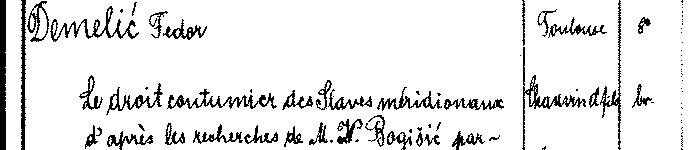 Demelić Fedor Toulouse 8º
Le droit coutumier des Slaves méridionaux Chauvin et fils br.
d'après les recherches de M. V. Bogišić par-